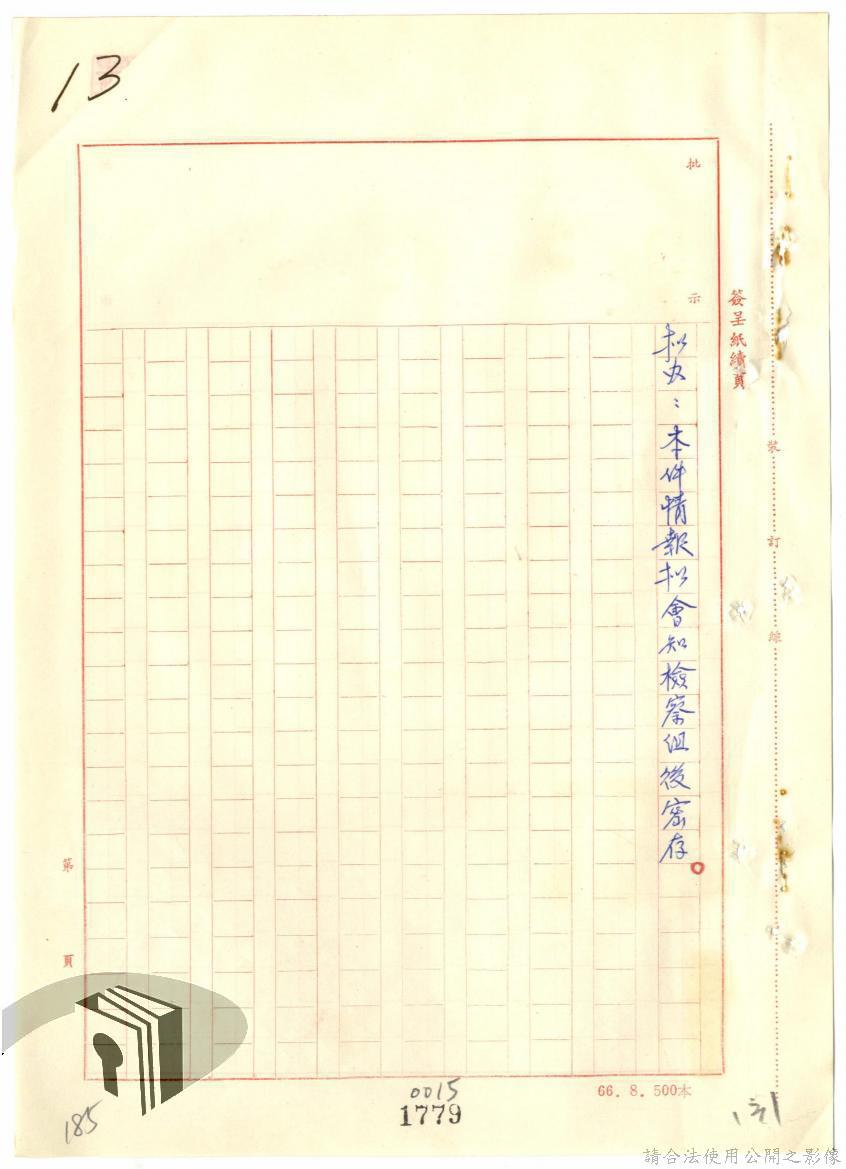 13
批示
簽呈紙續頁
裝訂線
拟办：本件情報拟會知檢察组後密存。
第 頁
0015
66.8.500本
1779
185
請合法使用公開之影像